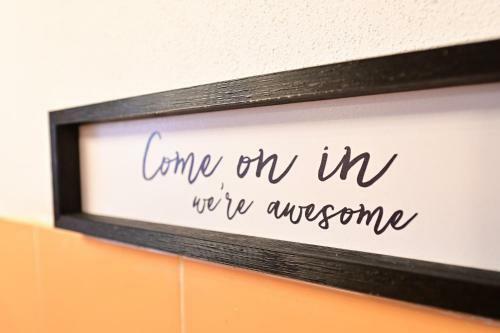 Come on in
we're awesome